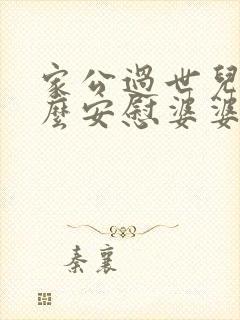 家公過世兒
麼安慰婆婆
秦襄